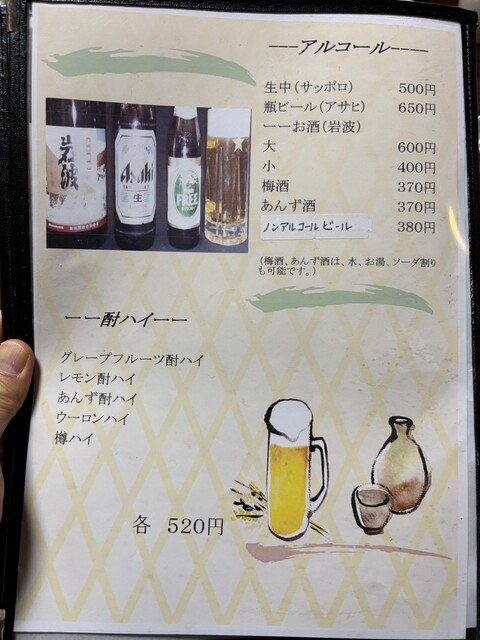 ---アルコール----
生中(サッポロ) 500円
瓶ビール(アサヒ) 650円
ーーお酒(岩波)
大 600円
小 400円
梅酒 370円
あんず酒 370円
ノンアルコール ビール 380円
(梅酒、あんず酒は、水、お湯、ソーダ割り
も可能です。)
岩波
Asahi
生
FREE
ーー酎ハイーー
グレープフルーツ酎ハイ
レモン酎ハイ
あんず酎ハイ
ウーロンハイ
樽ハイ
各 520円